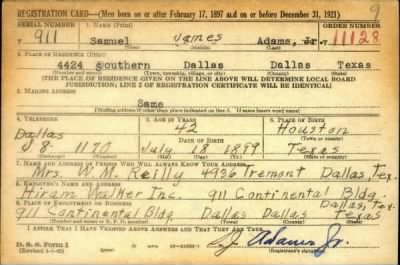 REGISTRATION CARD—(Men born on or after February 17, 1897 and on or before December 31, 1921) 9
SERIAL NUMBER 1. NAME (Print) ORDER NUMBER
T 911 Samuel James Adams, Jr. 11128
2. PLACE OF RESIDENCE (Print)
4424 Southern Dallas Dallas Texas
(Number and street) (Town, township, village, or city) (County) (State)
(THE PLACE OF RESIDENCE GIVEN ON THE LINE ABOVE WILL DETERMINE LOCAL BOARD
JURISDICTION; LINE 2 OF REGISTRATION CERTIFICATE WILL BE IDENTICAL)
3. MAILING ADDRESS
Same
(Mailing address if other than place indicated on line 2. If same insert word same)
4. TELEPHONE 5. AGE IN YEARS 6. PLACE OF BIRTH
Dallas 42 Houston
DATE OF BIRTH
J 8. 1170 July 18 1899 Texas
7. NAME AND ADDRESS OF PERSON WHO WILL ALWAYS KNOW YOUR ADDRESS
Mrs. W. M. Reilly 4936 Tremont Dallas, Tex.
8. EMPLOYER'S NAME AND ADDRESS
Hiram Walker Inc. 911 Continental Bldg.
Dallas, Tex.
9. PLACE OF EMPLOYMENT OR BUSINESS
911 Continental Bldg. Dallas Dallas Texas
I AFFIRM THAT I HAVE VERIFIED ABOVE ANSWERS AND THAT THEY ARE TRUE.
D. S. S. Form 1
S J Adams Jr.
(Registrant's signature)